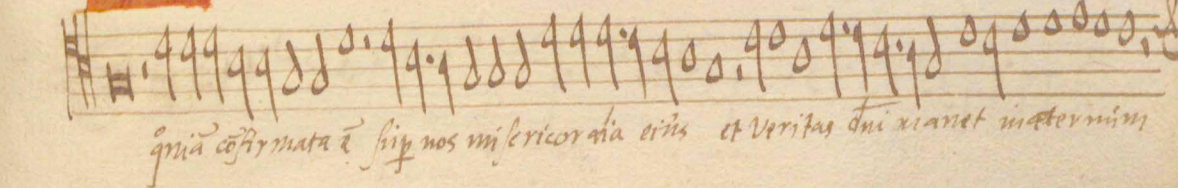 qͦniā cōfirmata ē sup̱ nos misericordia eius et veritas dn̄i manet in æternum